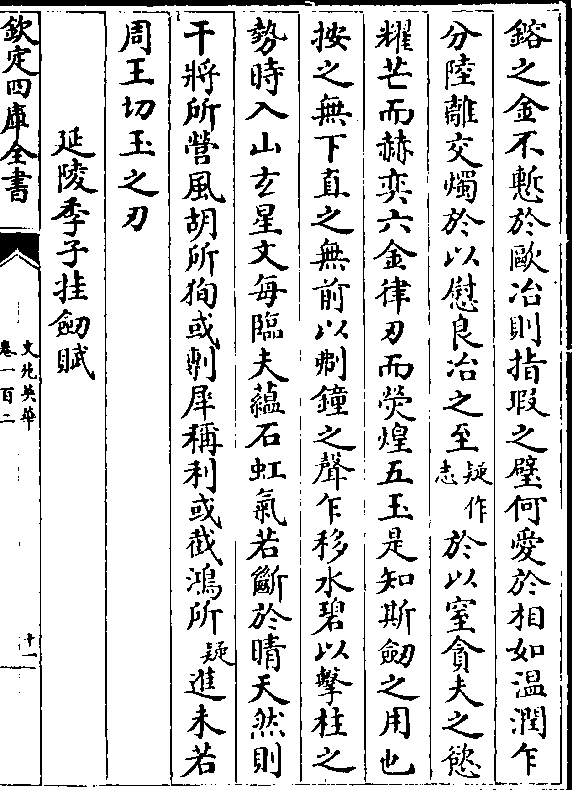 鎔之金不慙於歐冶則指瑕之璧何愛於相如温潤乍
分陸離交燭於以慰良冶之至疑作志於以窒貪夫之慾
耀芒而赫奕六金律刃而熒煌五玉是知斯劒之用也
按之無下直之無前以剸鐘之聲乍移水碧以擊柱之
勢時入山𤣥星文每臨夫蘊石虹氣若斷於晴天然則
干將所營風胡所狥或剸犀稱利或截鴻所疑進未若
周王切玉之刃
延陵季子挂劒賦
欽定四庫全書
文苑英華
卷一百二
十一